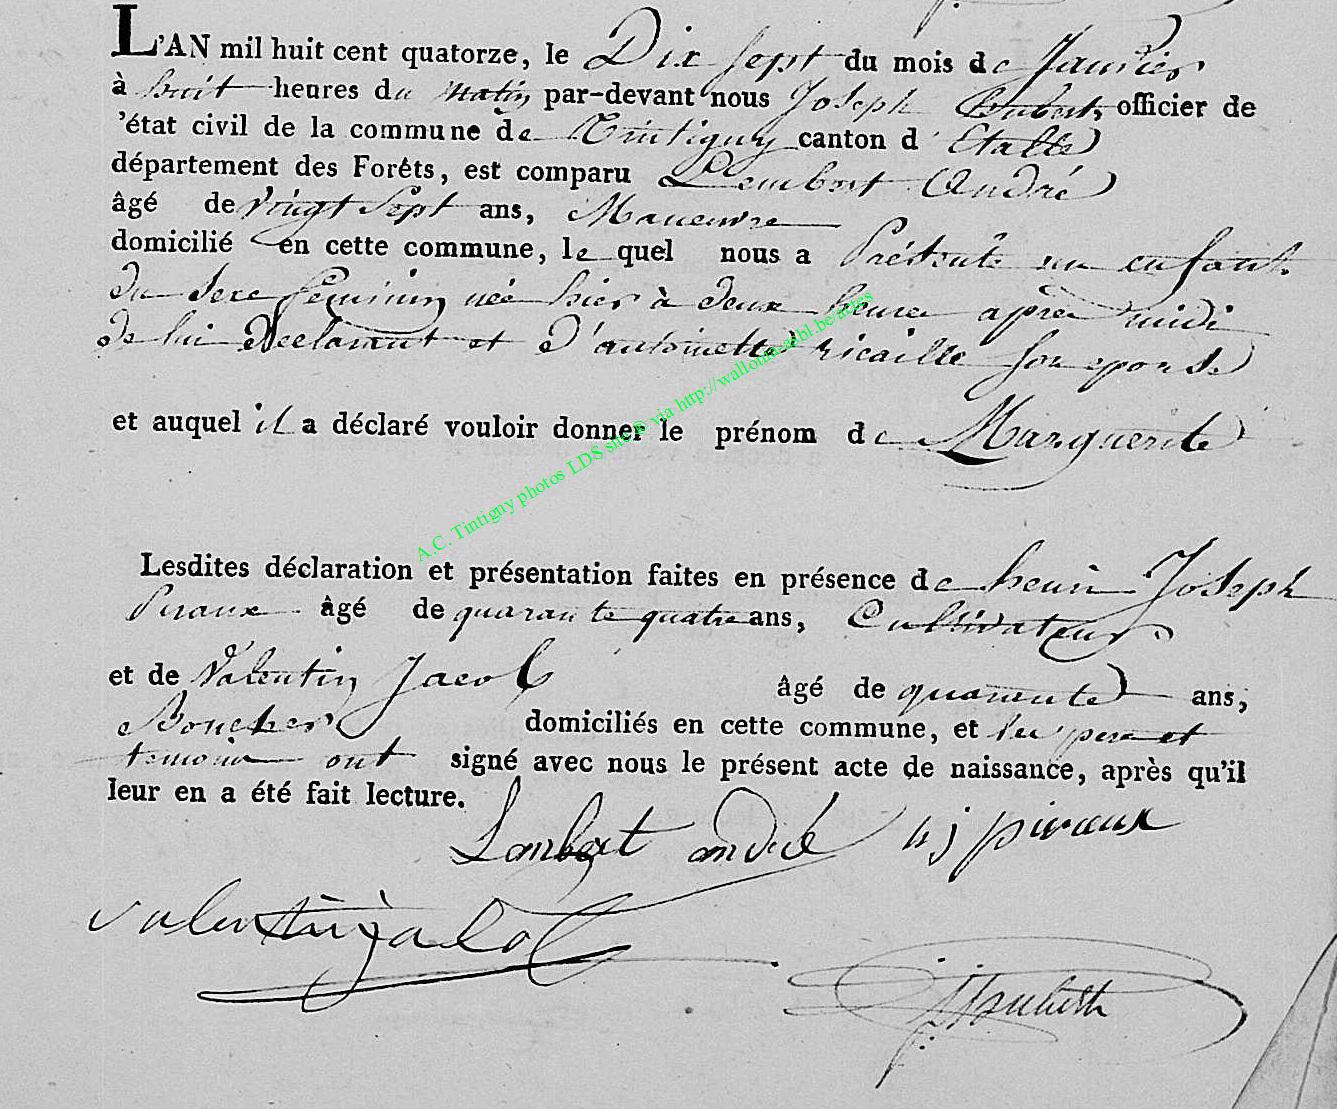 L'AN mil huit cent quatorze, le Dix Sept du mois de Janvier
à huit heures du matin par-devant nous Joseph hubert, officier de
'état civil de la commune de Tintigny canton d'Etalle
département des Forêts, est comparu Lembert André
âgé de Vingt Sept ans, Maneuvre
domicilié en cette commune, le quel nous a Présenté un enfant
du Sexe féminin née hier à deux heures après midi
de lui Déclarant et d'antoinette ricaille Son epouse
et auquel il a déclaré vouloir donner le prénom de Marguerite
A.C. Tintigny photos LDS site © via http://wallonia-asbl.be/actes
Lesdites déclaration et présentation faites en présence de henri Joseph
Piraux âgé de quarante quatre ans, Cultivateur
et de Valentin Jacob âgé de quarante ans,
Boucher domiciliés en cette commune, et les pere et
temoin ont signé avec nous le présent acte de naissance, après qu'il
leur en a été fait lecture.
Lambert andré h j piraux
valentin jacob